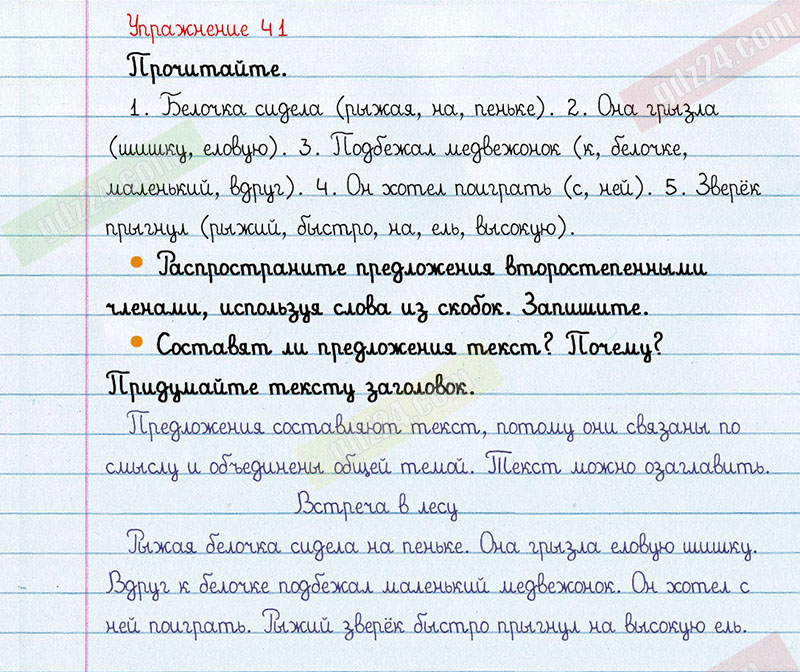 Упражнение 41
Прочитайте.
1. Белочка сидела (рыжая, на, пеньке). 2. Она грызла
(шишку, еловую). 3. Подбежал медвежонок (к, белочке,
маленький, вдруг). 4. Он хотел поиграть (с, ней). 5. Зверёк
прыгнул (рыжий, быстро, на, ель, высокую).
• Распространите предложения второстепенными
членами, используя слова из скобок. Запишите.
• Составят ли предложения текст? Почему?
Придумайте тексту заголовок.
Предложения составляют текст, потому они связаны по
смыслу и объединены общей темой. Текст можно озаглавить.
Встреча в лесу
Рыжая белочка сидела на пеньке. Она грызла еловую шишку.
Вдруг к белочке подбежал маленький медвежонок. Он хотел с
ней поиграть. Рыжий зверёк быстро прыгнул на высокую ель.
gdz24.com
gdz24.com
gdz24.com